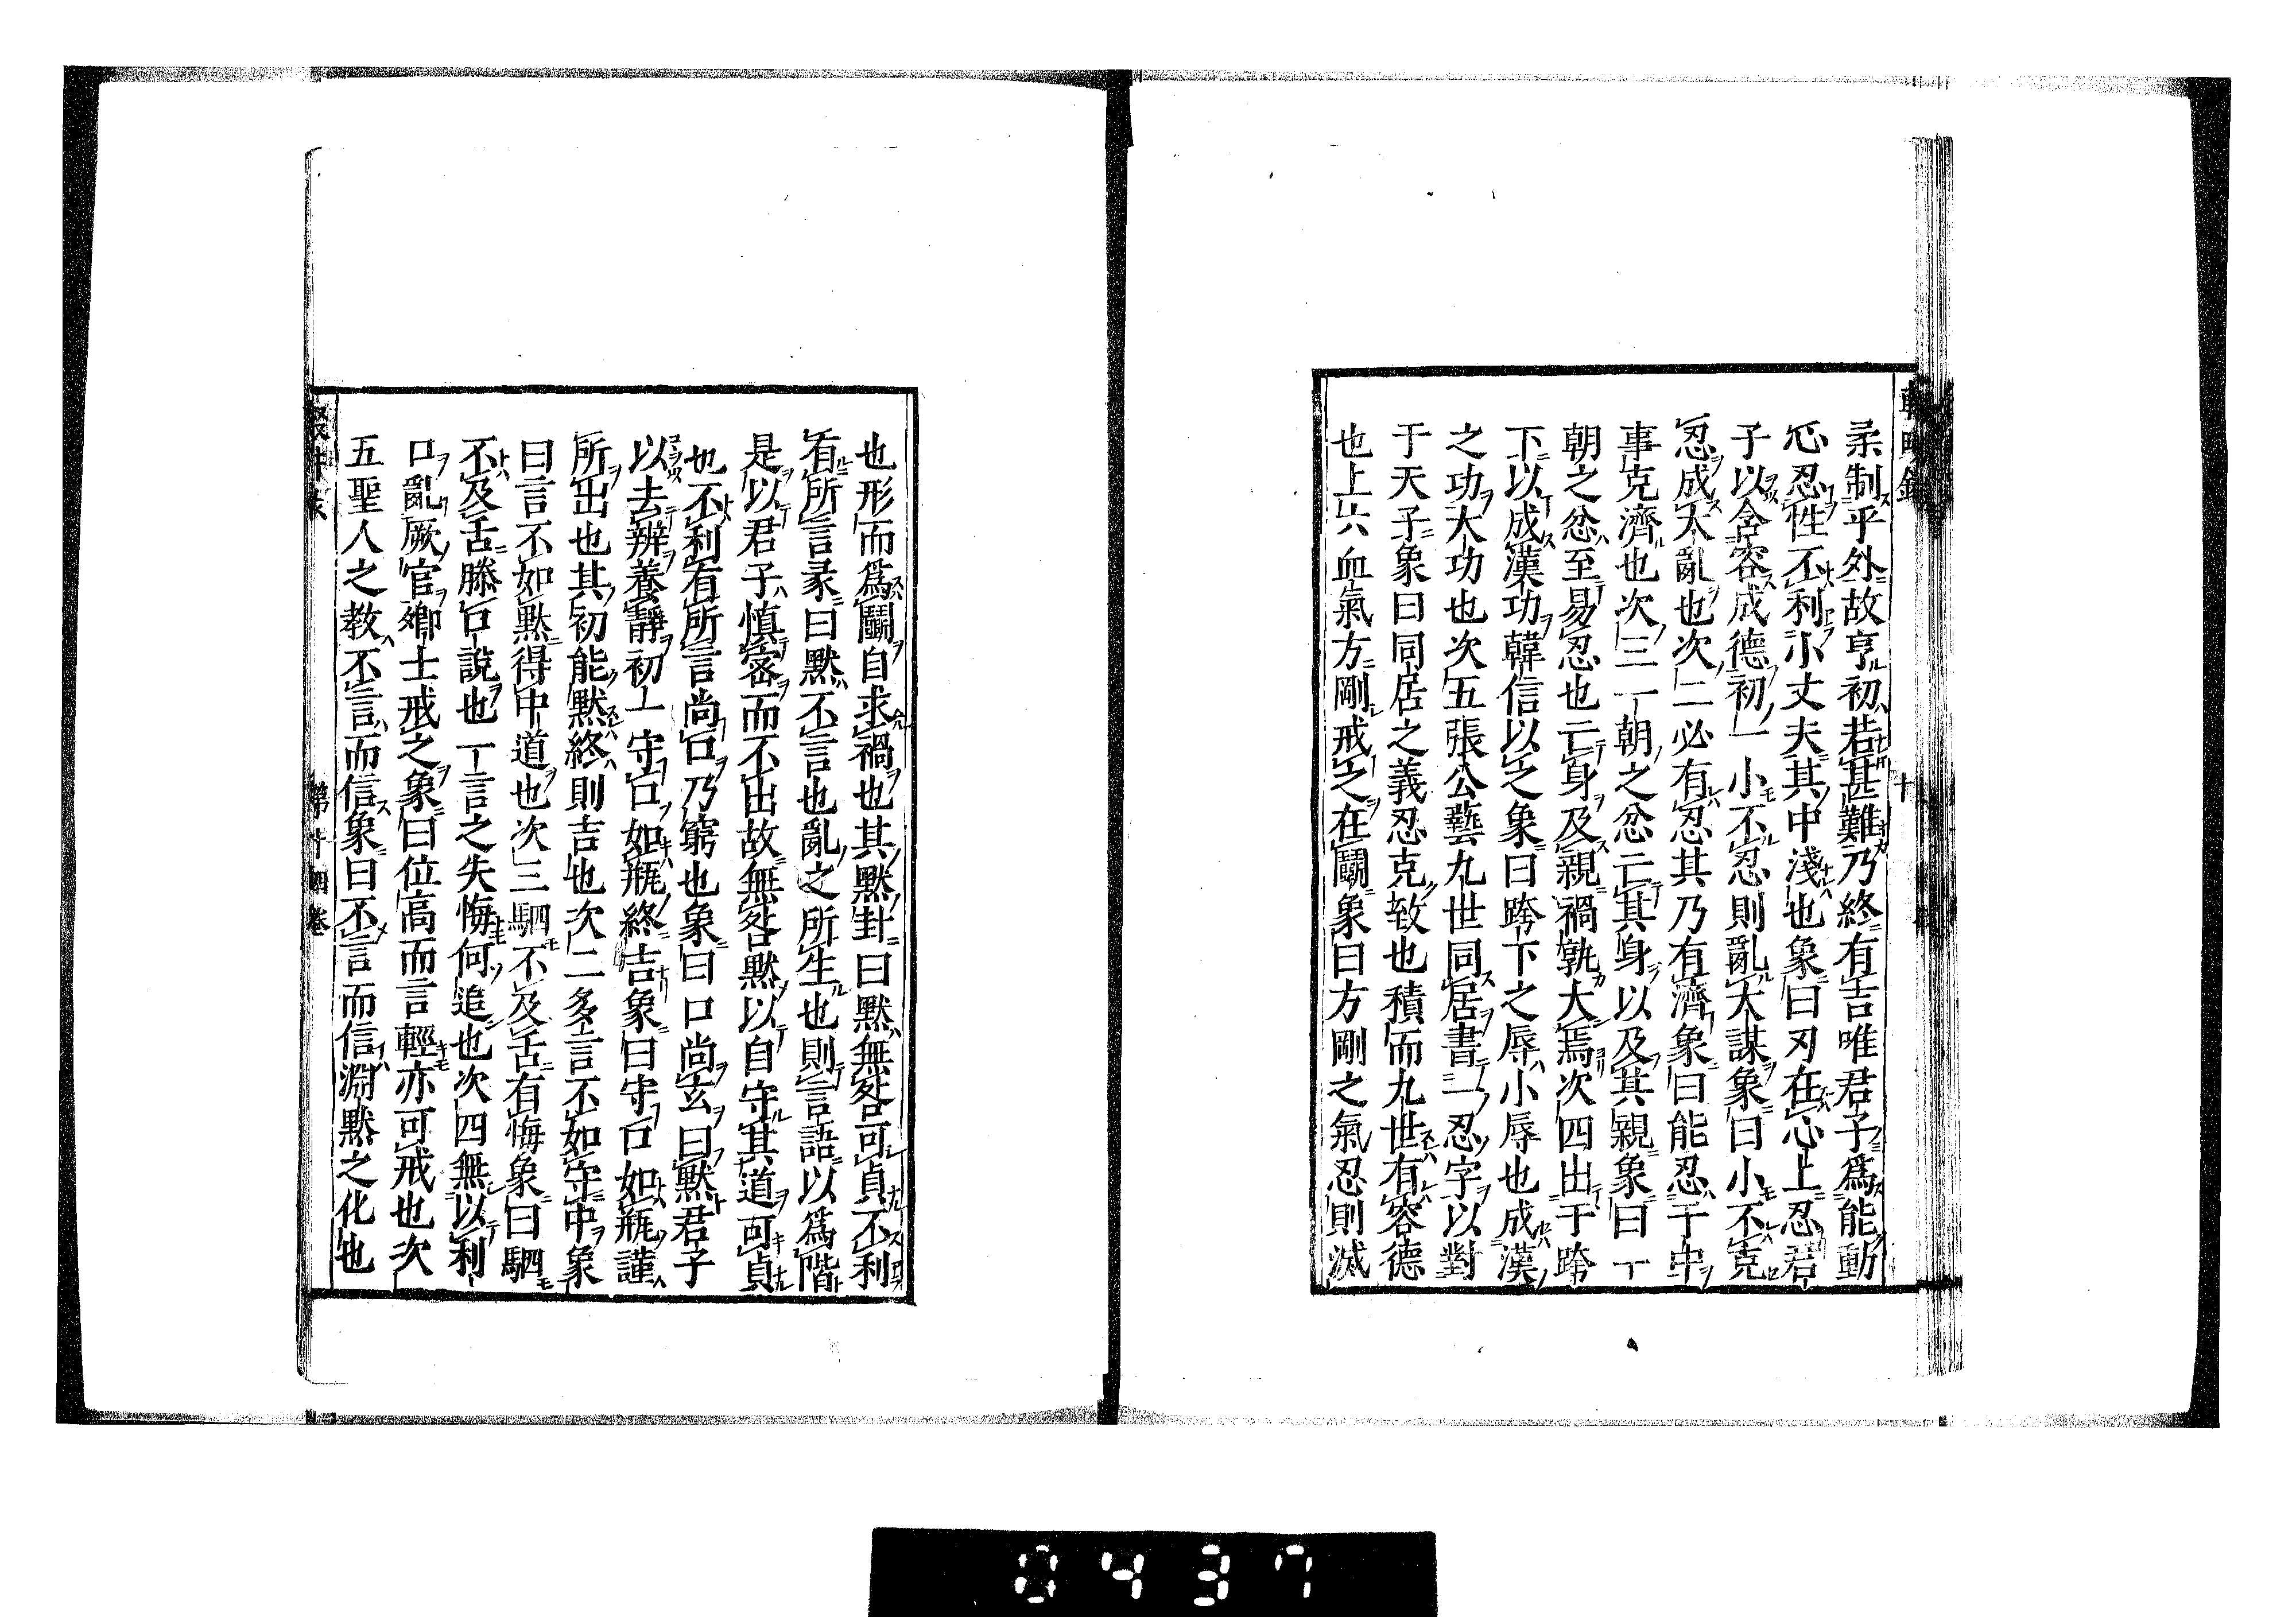 柔制乎外故亨初若甚難乃終有吉唯君子爲能動
心忍性不利小丈夫其中淺也象曰刃在心上忍君
子以含容成德初一小不忍則亂大謀象曰小不克
忍成大亂也次二必有忍其乃有濟象曰能忍于中
事克濟也次三一朝之忿亡其身以及其親象曰一
朝之忿至易忍也亡身及親禍孰大焉次四出于跨
下以成漢功韓信以之象曰跨下之辱小辱也成漢
之功大功也次五張公藝九世同居書一忍字以對
于天子象曰同居之義忍克致也積而九世有容德
也上六血氣方剛戒之在鬭象曰方剛之氣忍則滅
也形而爲鬭自求禍也其默卦曰默無咎可貞不利
有所言彖曰默不言也亂之所生也則言語以爲階
是以君子慎密而不出故無咎默以自守其道可貞
也不利有所言尚口乃窮也象曰口尚玄曰默君子
以去辨養靜初一守口如瓶終吉象曰守口如瓶謹
所出也其初能默終則吉也次二多言不如守中象
曰言不如默得中道也次三駟不及舌有悔象曰駟
不及舌滕口說也一言之失悔何追也次四無以利
口亂厥官卿士戒之象曰位高而言輕亦可戒也次
五聖人之教不言而信象曰不言而信淵默之化也
第十四卷
0437